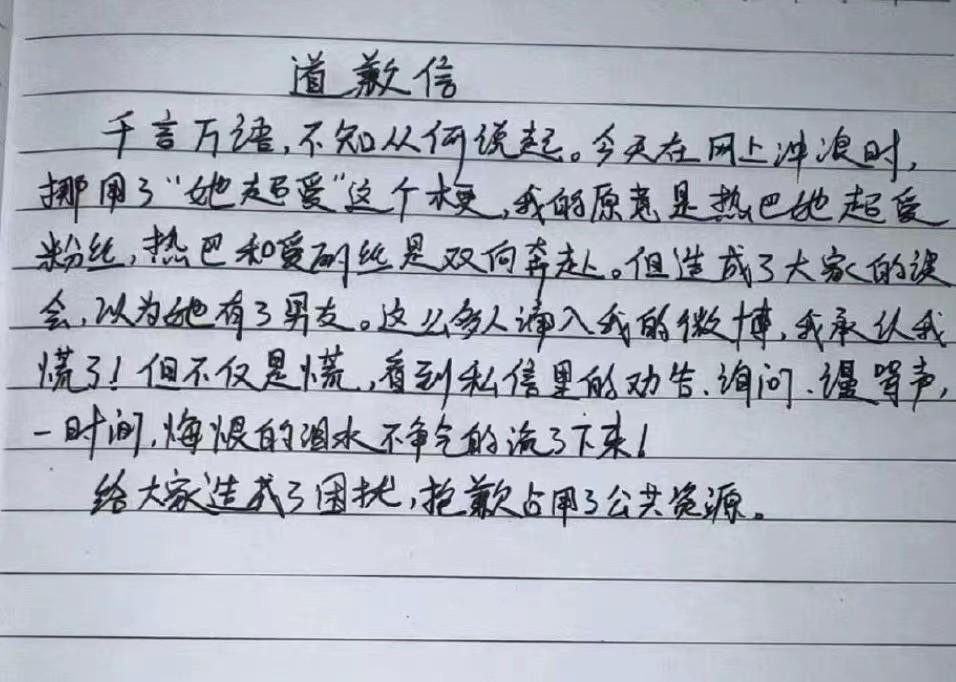 道歉信
千言万语,不知从何说起。今天在网上冲浪时,
挪用了“她超爱”这个梗,我的原意是热巴她超爱
粉丝,热巴和爱丽丝是双向奔赴。但造成了大家的误
会,以为她有了男友。这么多人涌入我的微博,我承认我
慌了!但不仅是慌,看到私信里的劝告、询问、谩骂声,
一时间,悔恨的泪水不争气的流了下来!
给大家造成了困扰,抱歉占用了公共资源。